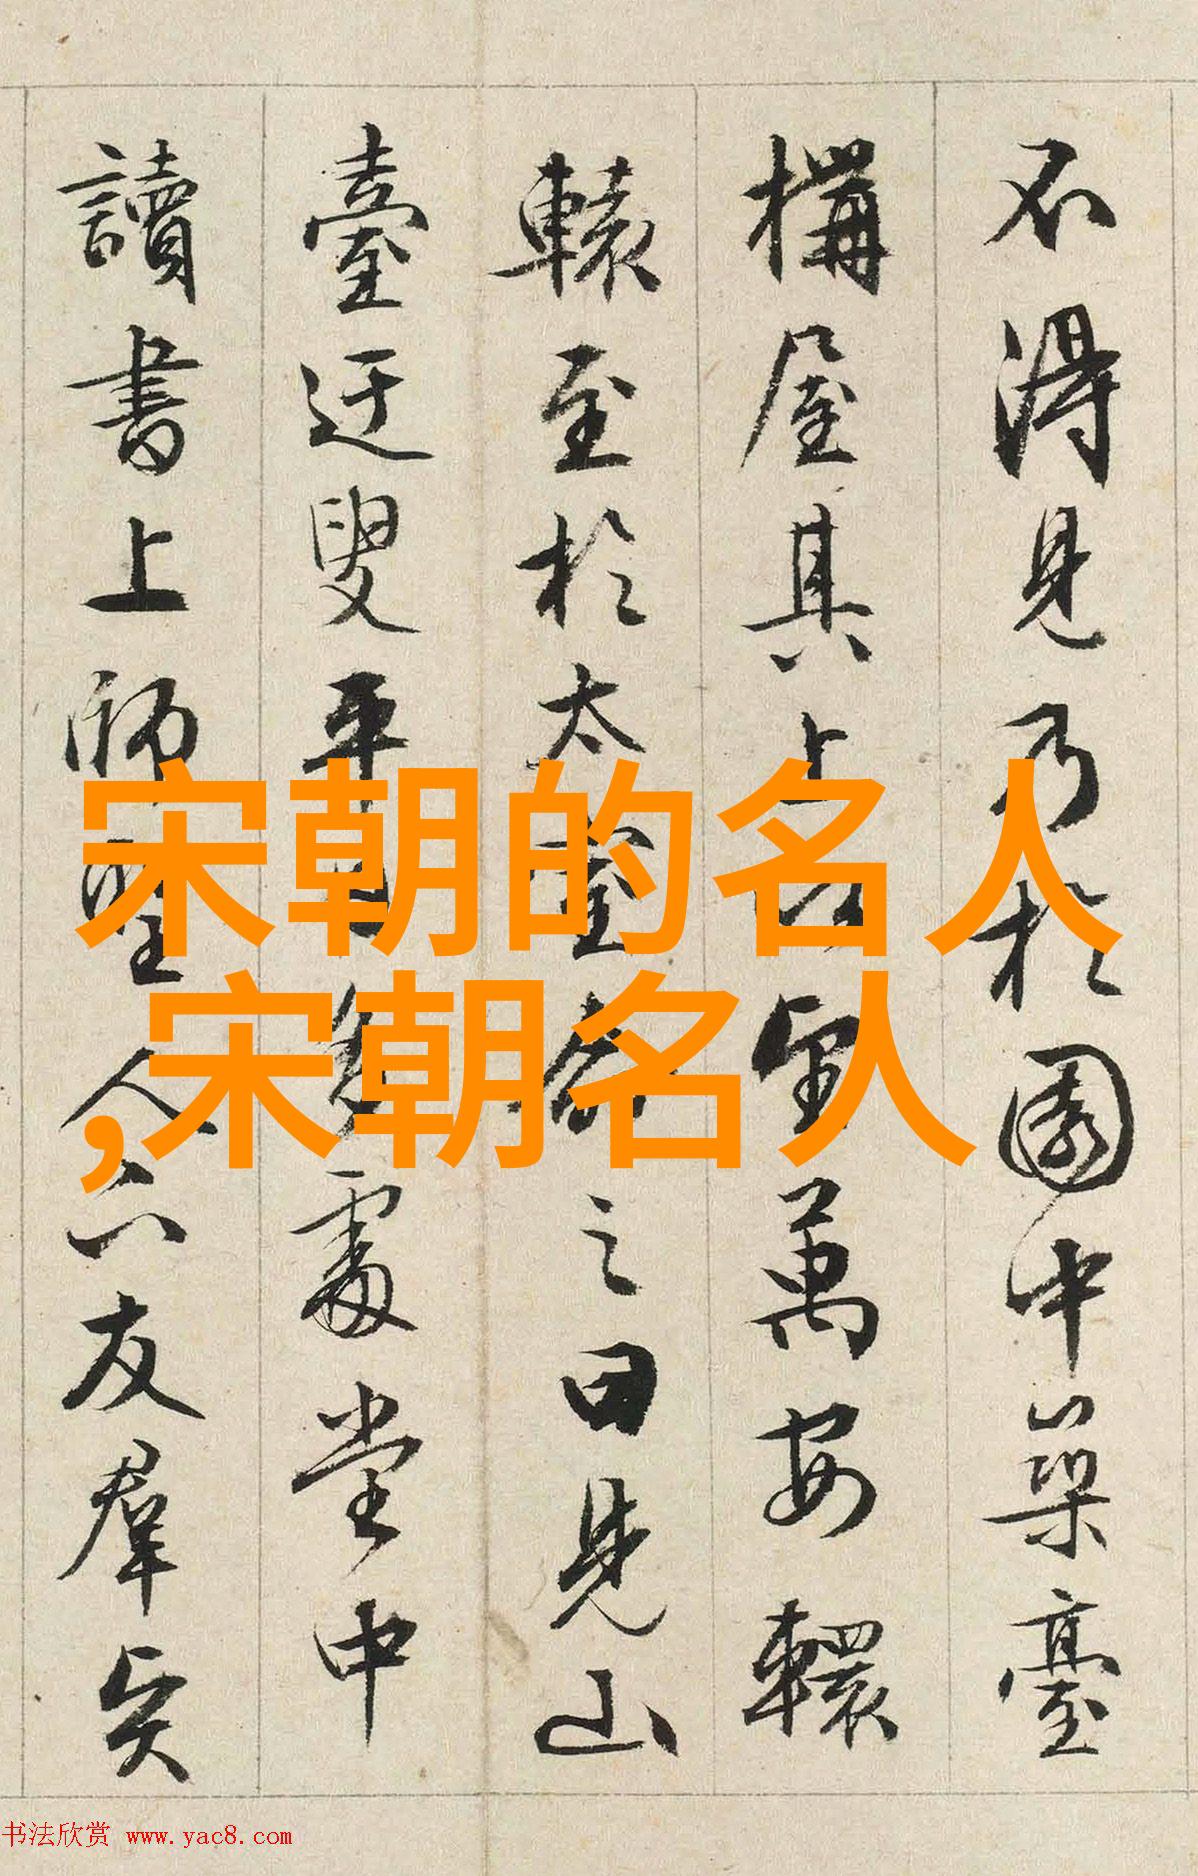 不得見乃於園中築臺
構屋其上以望萬安轘
轅至於太室命之曰見山
臺迂叟平日多處堂中
讀書上師聖人下友羣賢
宋朝的名人
,宋朝名人
书法欣赏 www.yac8.com